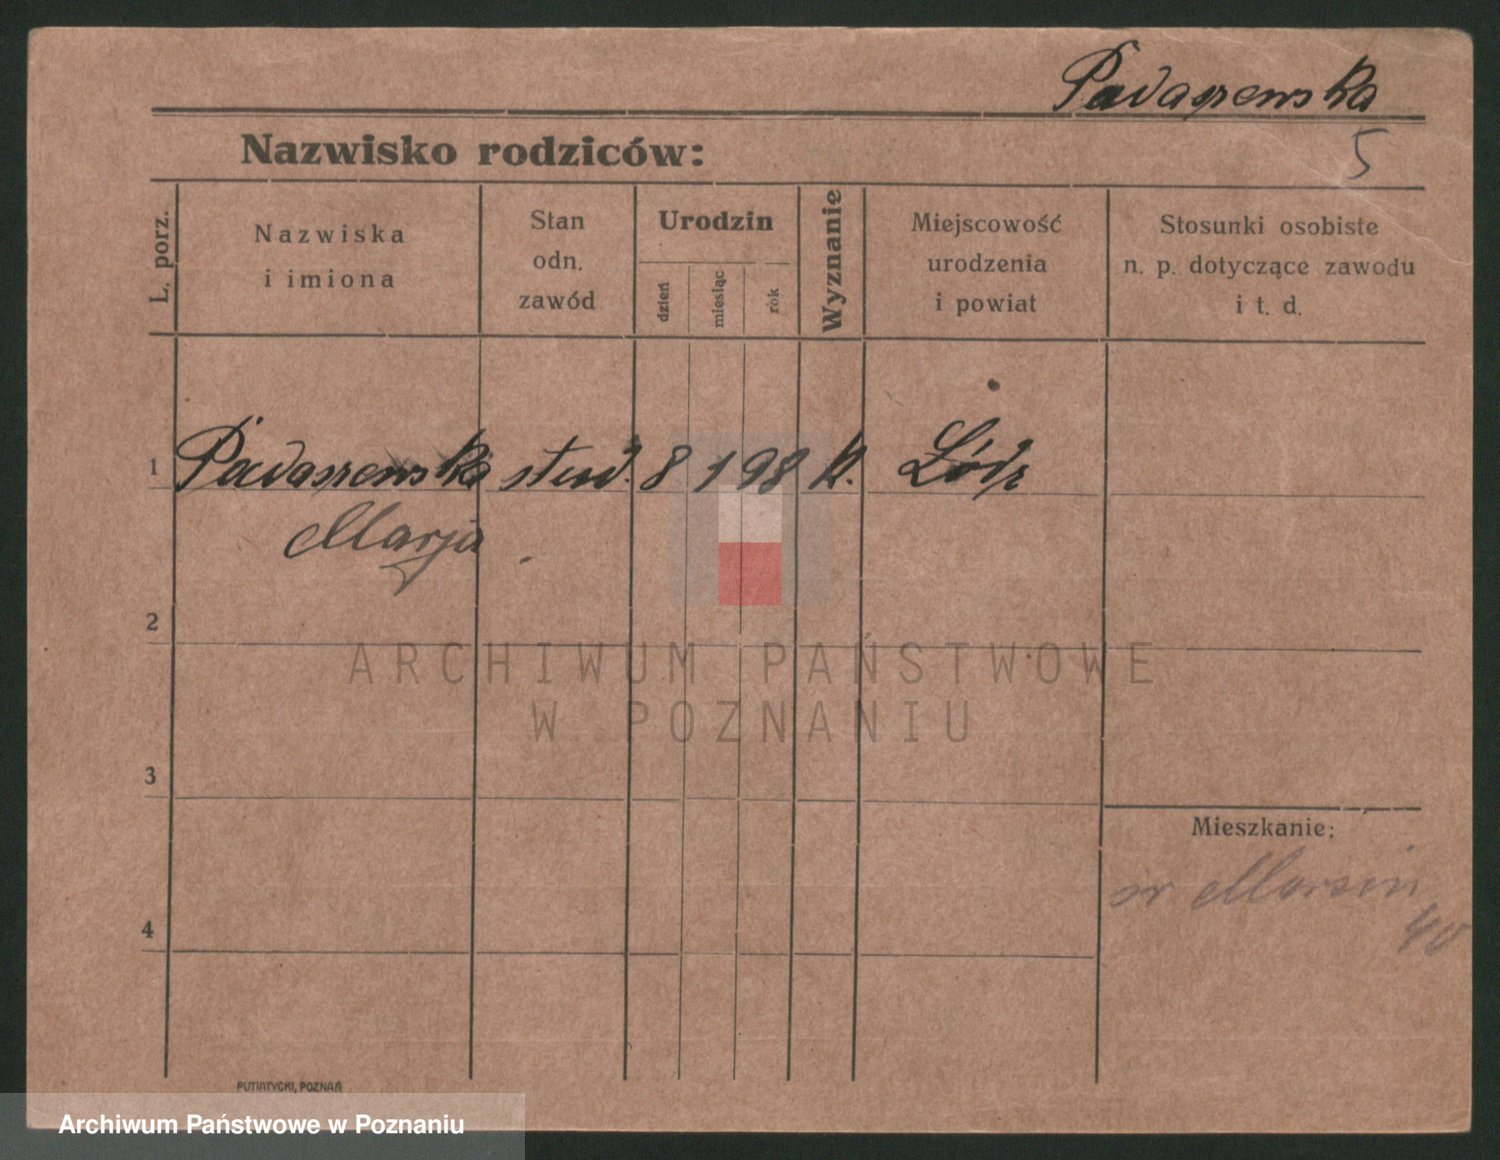 Padaszewska
5
Nazwisko rodziców:
L. porz.
Nazwiska
i imiona
Stan
odn.
zawód
Urodzin
dzień
miesiąc
rok
Wyznanie
Miejscowość
urodzenia
i powiat
Stosunki osobiste
n. p. dotyczące zawodu
i t. d.
1 Padaszewska stud. 8 1 98 k. Łódz
Marja
2
ARCHIWUM PAŃSTWOWE
W POZNANIU
3
Mieszkanie:
św Marcin
40
4
PUTIATYCKI, POZNAŃ
Archiwum Państwowe w Poznaniu